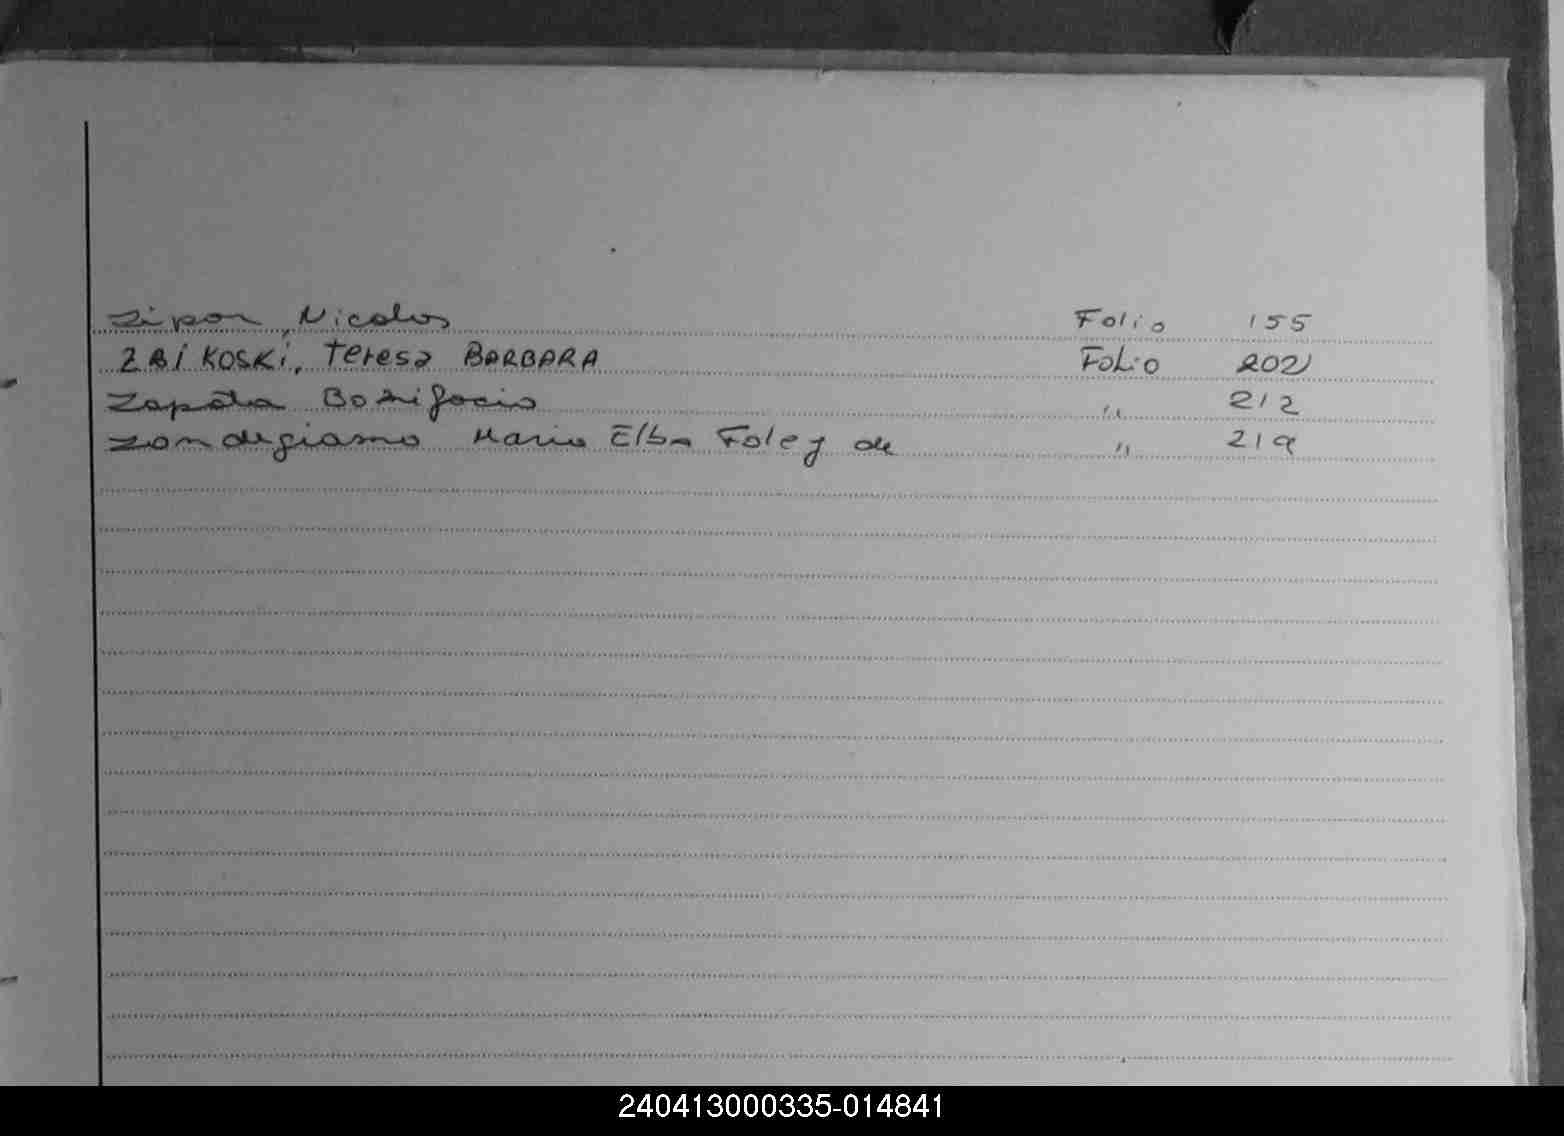 Zipor, Nicolas Folio 155
ZBIKOSKi, Teresa BARBARA FoLio 202
Zapata Bonifacio " 212
Zandegiasmo Maria Elba Foley de " 219
240413000335-014841